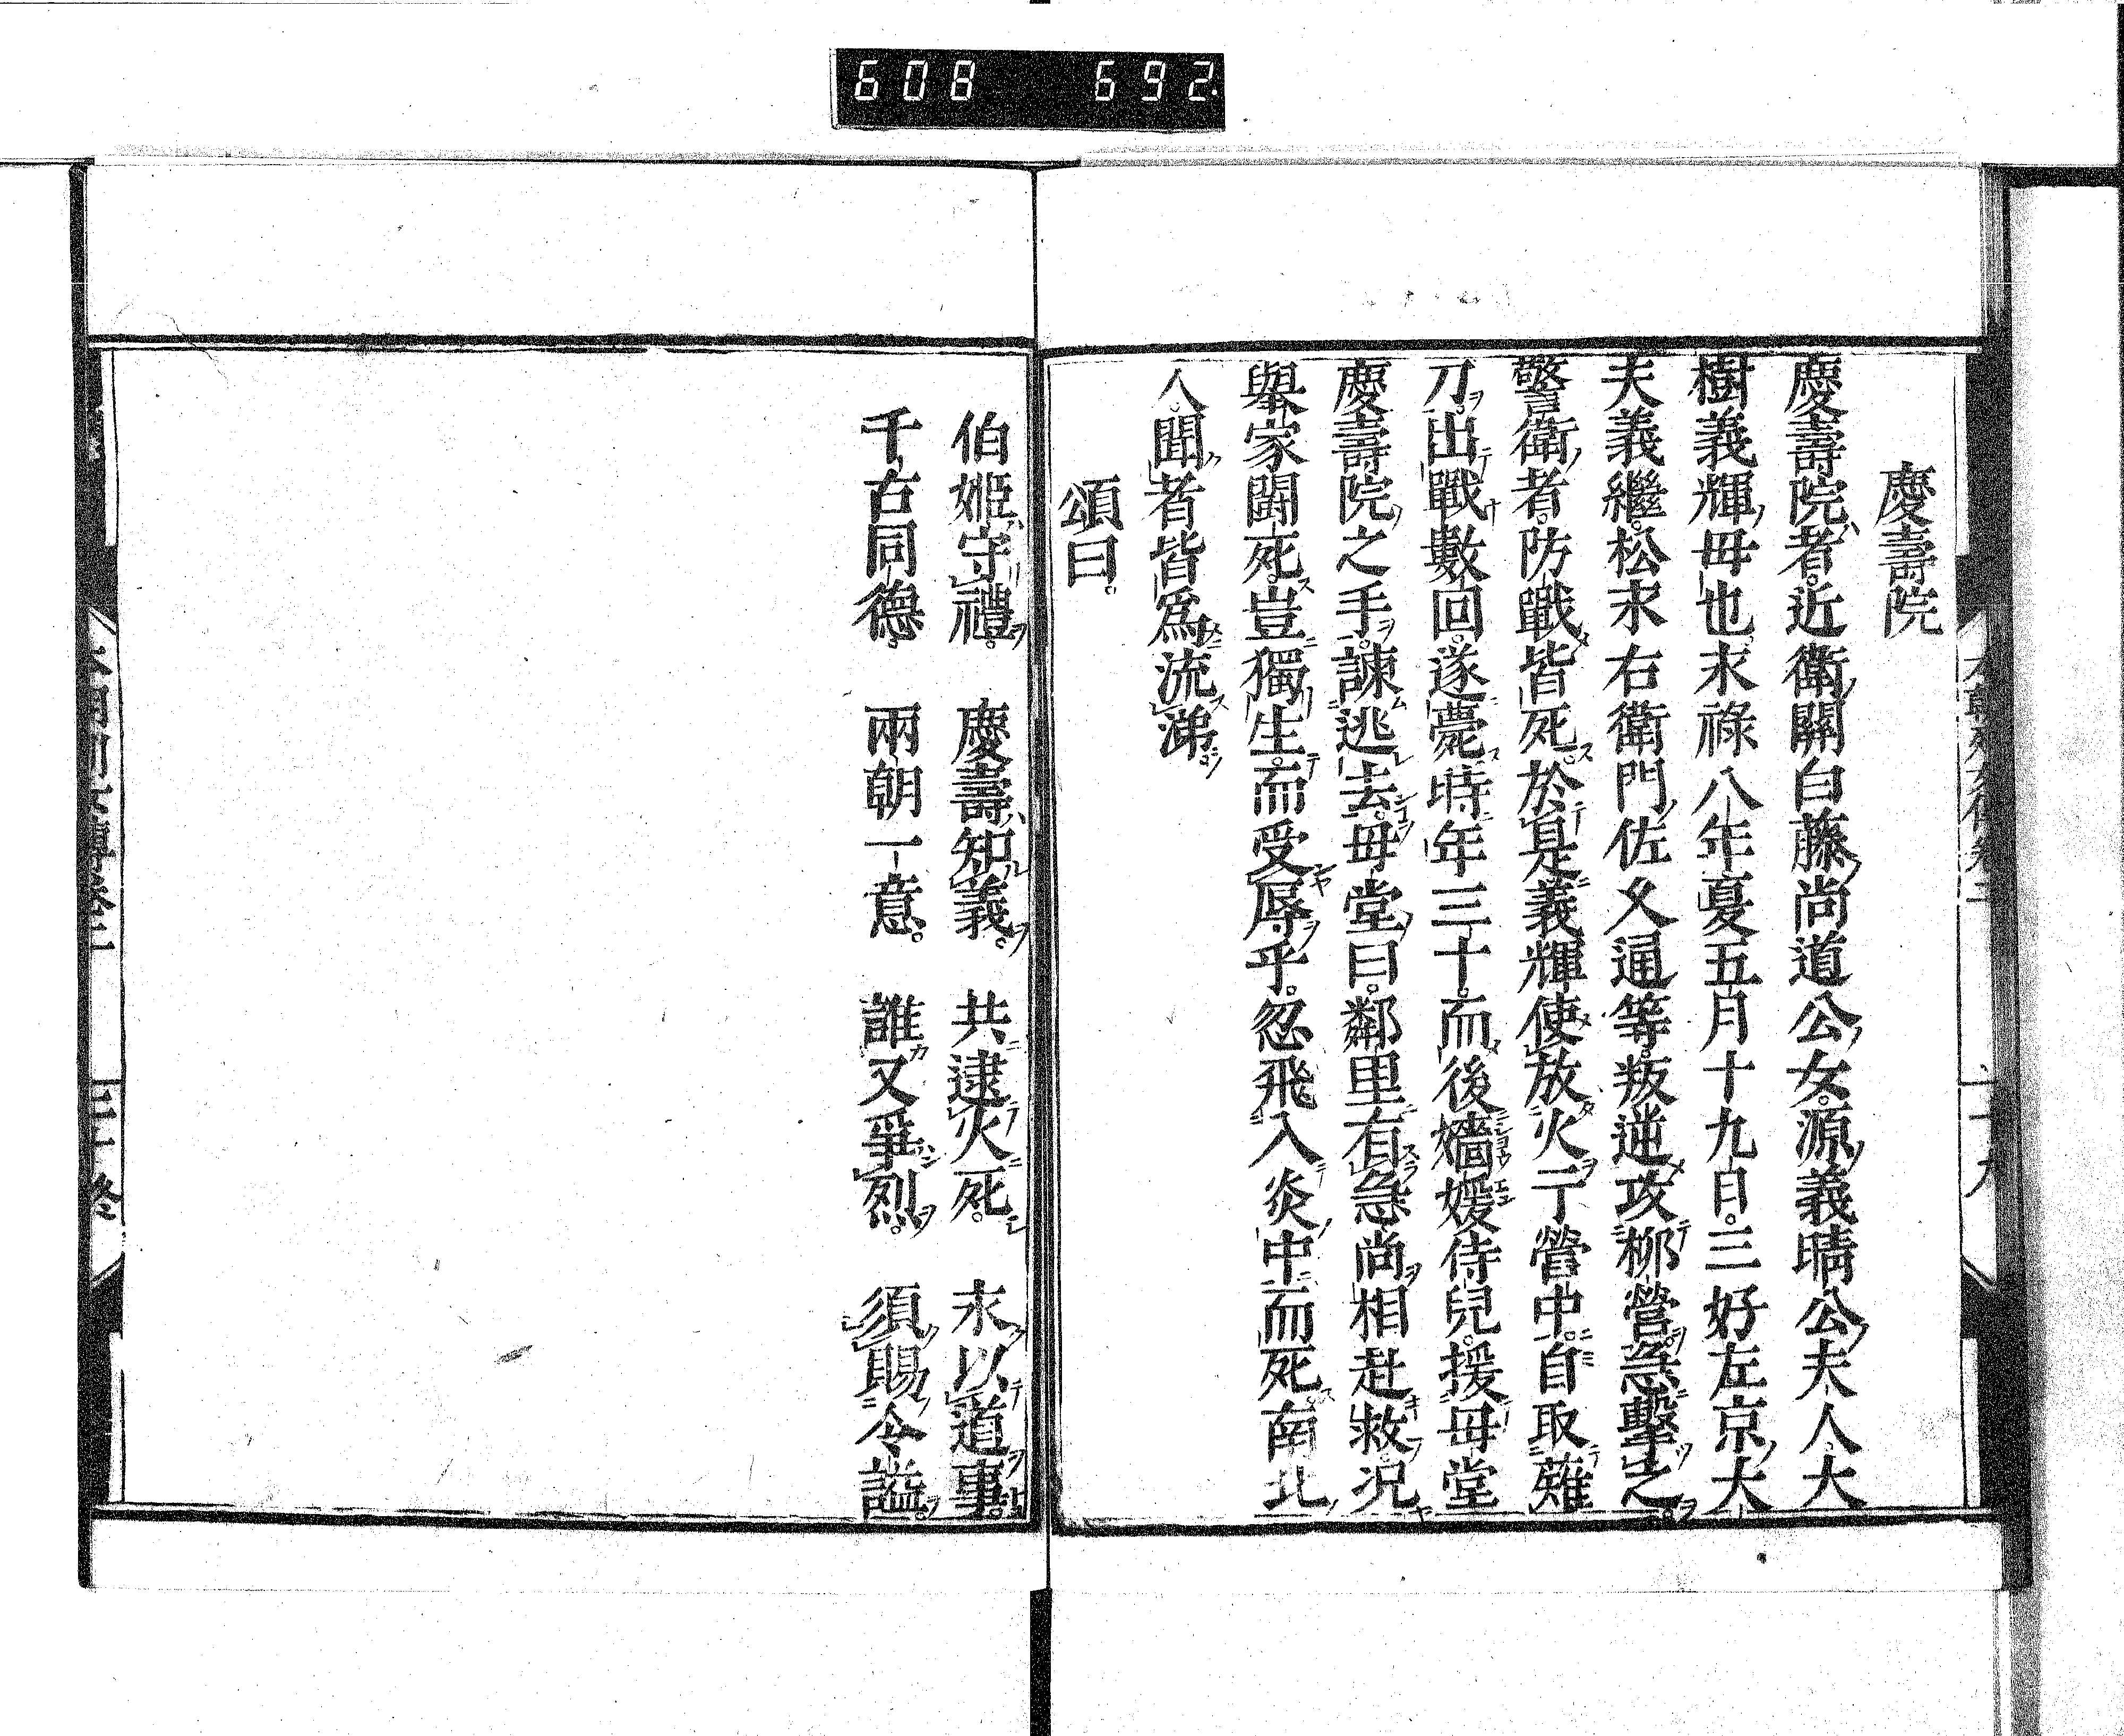 608 692
慶壽院
慶壽院者。近衛關白藤尚道公女。源義晴公夫人。大
樹義輝母也。永祿八年夏五月十九日。三好左京大
夫義繼。松永右衛門佐久通等。叛逆攻柳營。急擊之。
警衛者。防戰皆死。於是義輝使放火于營中。自取薙
刀。出戰數回。遂薨。時年三十。而後嬙媛侍兒。援母堂
慶壽院之手。諫逃去。母堂曰。鄰里有急尚相赴救。況
舉家鬪死。豈獨生。而受辱乎。忽飛入炎中而死。南北
人。聞者皆爲流涕。
頌曰。
伯姬守禮。 慶壽知義。 共逮火死。 永以道事。
千古同德。 兩朝一意。 誰又爭烈。 須賜令謚。